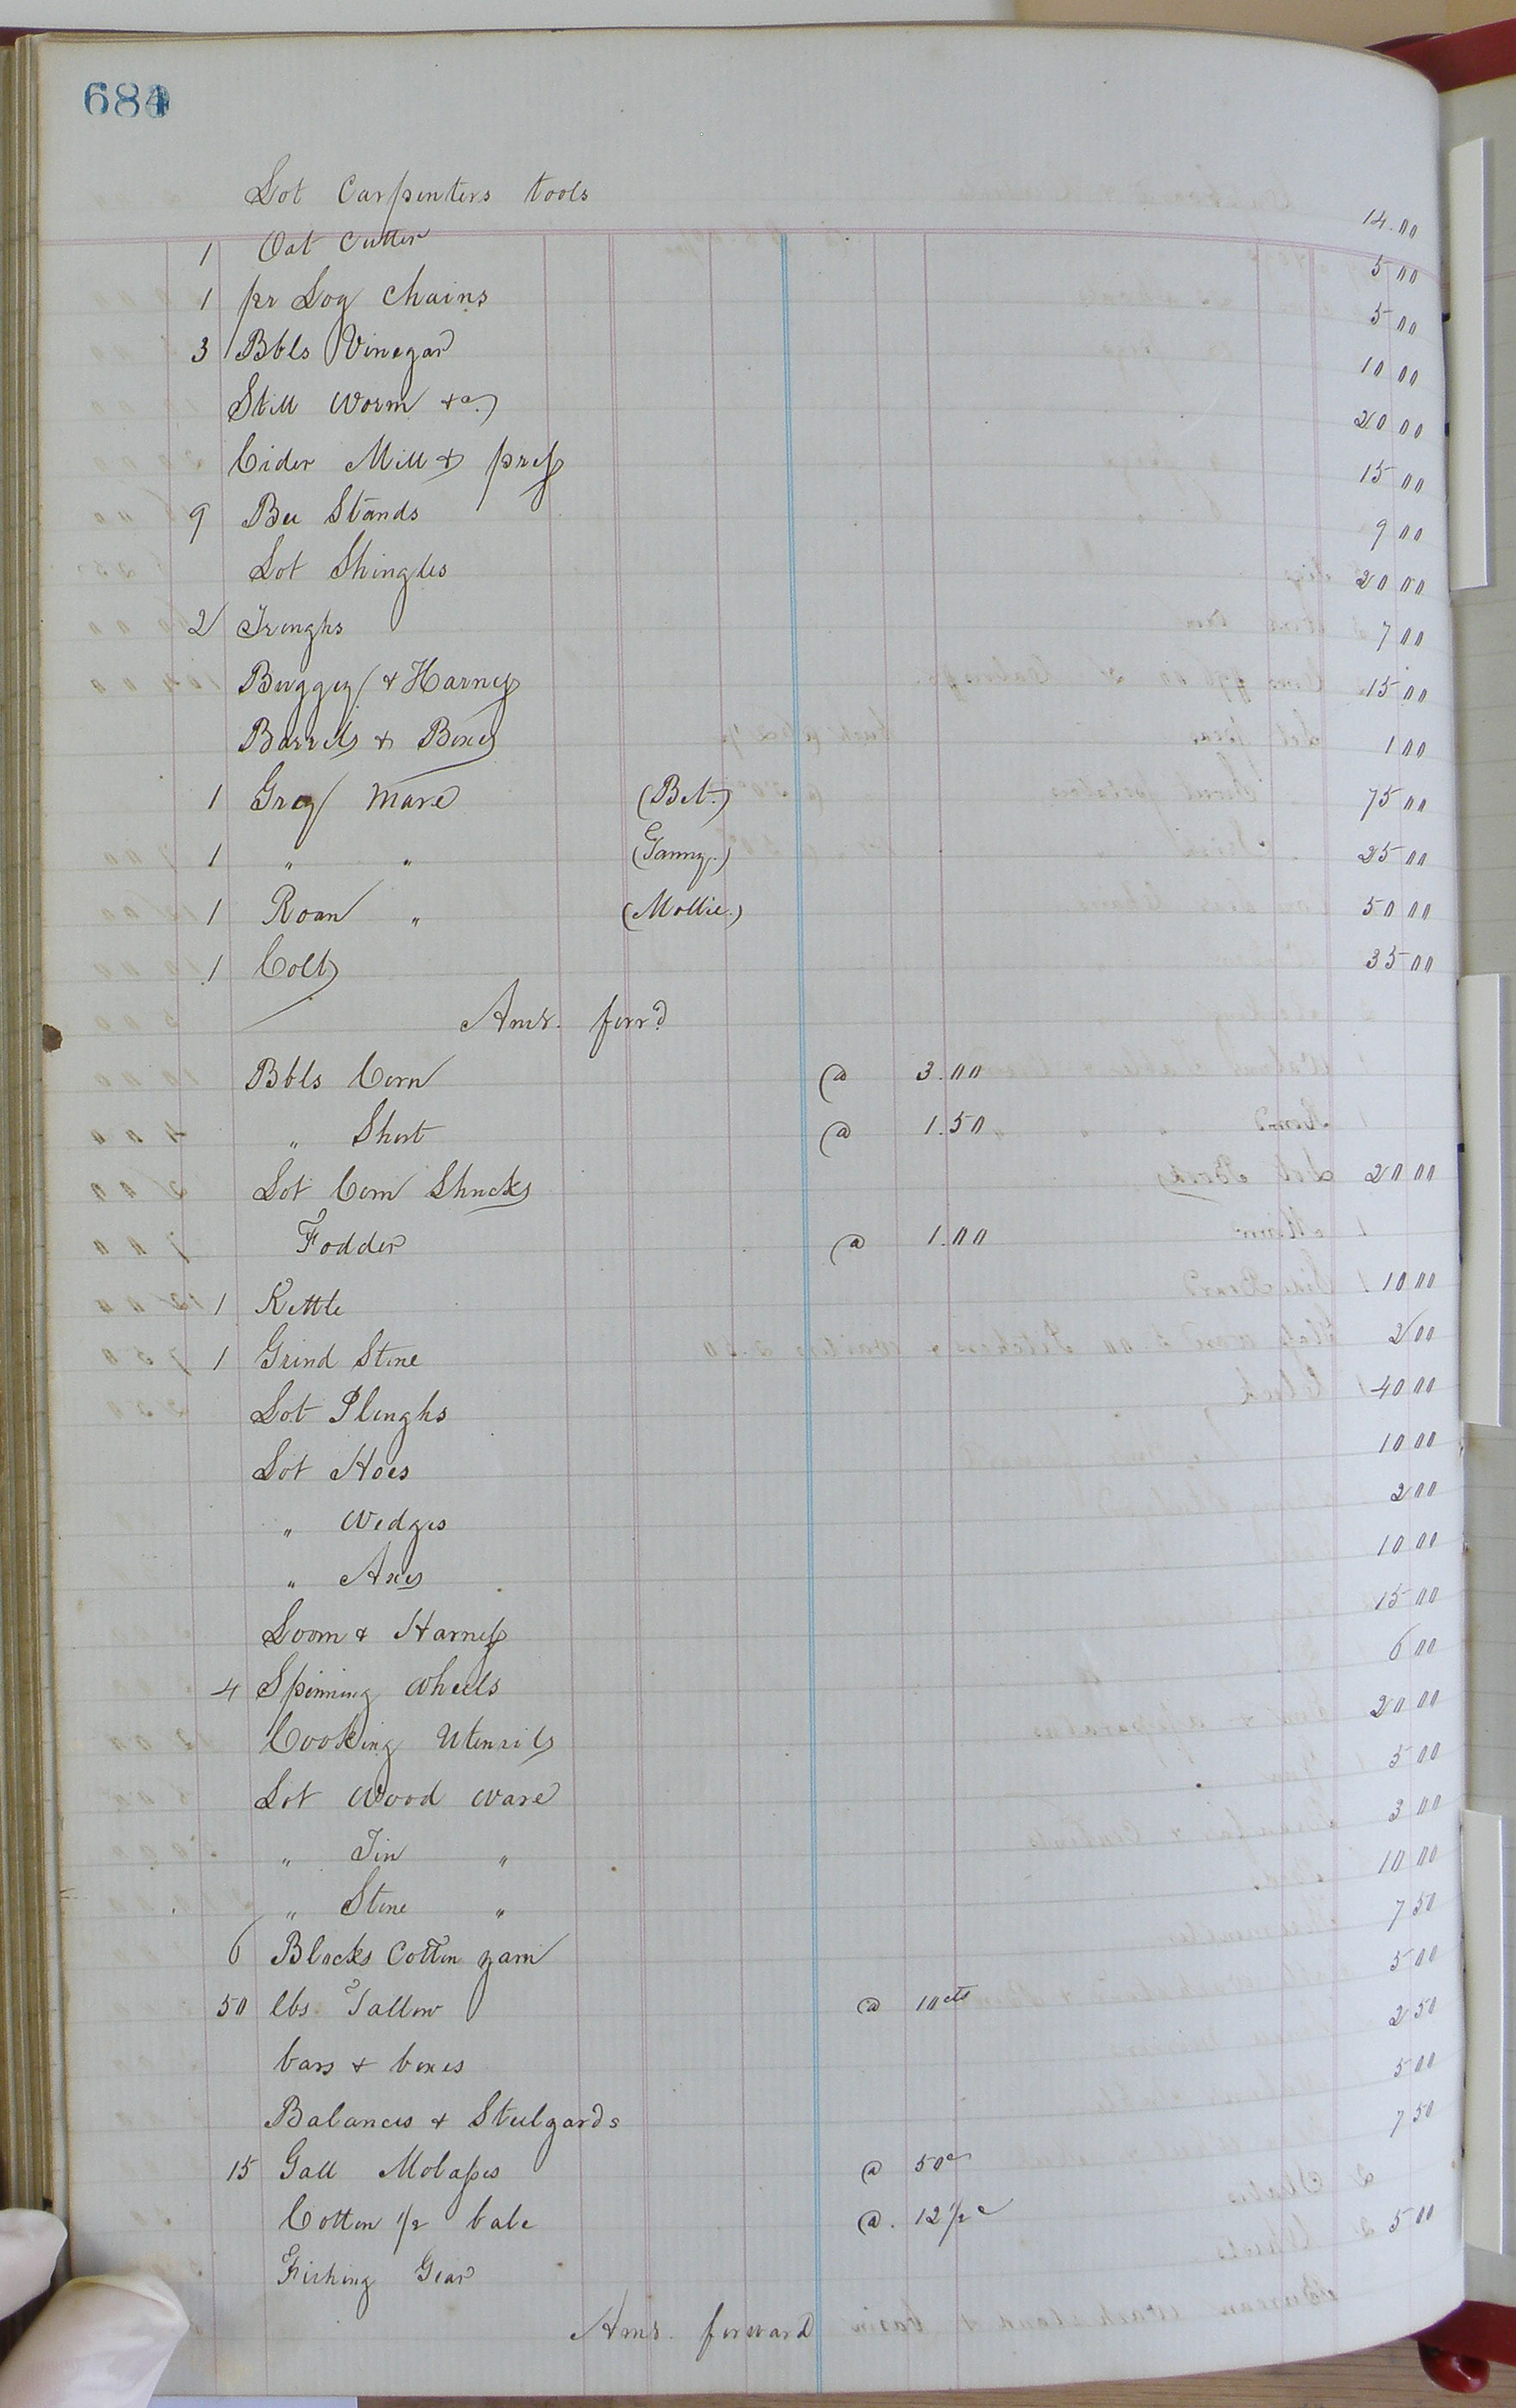 684
Lot Carpenters tools 14.00
1 Oat Cutter 5 00
1 pr Log Chains 5 00
3 Bbls Vinegar 10 00
Still Worm &c. 20 00
Cider Mill & press 15 00
9 Bee Stands 9 00
Lot Shingles 20 00
2 Troughs 7 00
Buggey & Harness 15 00
Barrels & Boxes 1 00
1 Grey Mare (Bet.) 75 00
1 " " (Fanny.) 25 00
1 Roan " (Mollie.) 50 00
1 Colt 35 00
Amt. forr'd
Bbls Corn @ 3.00
" Short @ 1.50
Lot Corn Shucks 20 00
Fodder @ 1.00
1 Kettle 10 00
1 Grind Stone 2 00
Lot Ploughs 40 00
Lot Hoes 10 00
" Wedges 2 00
" Axes 10 00
Loom & Harness 15 00
4 Spinning Wheels 6 00
Cooking Utensils 20 00
Lot Wood Ware 5 00
" Tin " 3 00
" Stone " 10 00
6 Blocks Cotton yarn 7 50
50 lbs. Tallow @ 10cts 5 00
bars & boxes 2 50
Balances & Steelgards 5 00
15 Gall Molasses @ 50c 7 50
Cotton 1/2 bale @. 12 1/2c
Fishing Gear 5 00
Amt. forward